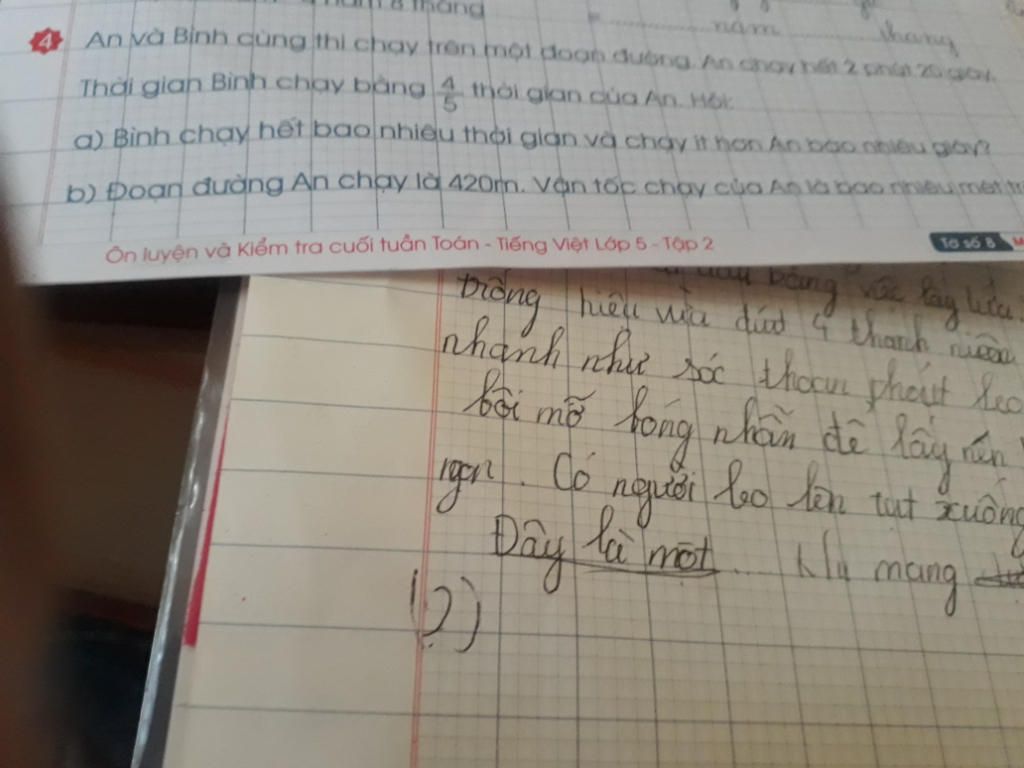 8 tháng
năm tháng
4 An và Bình cùng thi chạy trên một đoạn đường. An chạy hết 2 phút 20 giây.
Thời gian Bình chạy bằng 4/5 thời gian của An. Hỏi:
a) Bình chạy hết bao nhiêu thời gian và chạy ít hơn An bao nhiêu giây?
b) Đoạn đường An chạy là 420m. Vận tốc chạy của An là bao nhiêu mét
Ôn luyện và Kiểm tra cuối tuần Toán - Tiếng Việt Lớp 5 - Tập 2
Tờ số 8
bằng lấy lửa
trống hiệu vừa dứt 4 thanh niên
nhanh như sóc thoăn leo
bôi mỡ bóng nhẫn để lấy nén
ngọn. Có người leo lên tụt xuống
Đây là một mang
(?)